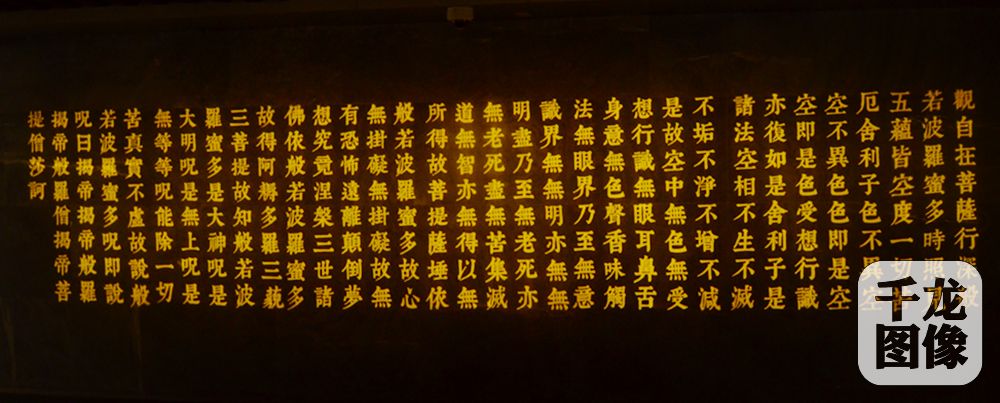 觀自在菩薩行深般
若波羅蜜多時照
五蘊皆空度一切苦
厄舍利子色不異空
空不異色色即是空
空即是色受想行識
亦復如是舍利子是
諸法空相不生不滅
不垢不淨不增不減
是故空中無色無受
想行識無眼耳鼻舌
身意無色聲香味觸
法無眼界乃至無意
識界無無明亦無無
明盡乃至無老死亦
無老死盡無苦集滅
道無智亦無得以無
所得故菩提薩埵依
般若波羅蜜多故心
無掛礙無掛礙故無
有恐怖遠離顛倒夢
想究竟涅槃三世諸
佛依般若波羅蜜多
故得阿耨多羅三藐
三菩提故知般若波
羅蜜多是大神呪是
大明呪是無上呪是
無等等呪能除一切
苦真實不虛故說般
若波羅蜜多呪即說
呪曰揭帝揭帝般羅
揭帝般羅僧揭帝菩
提僧莎訶
千龙
图像